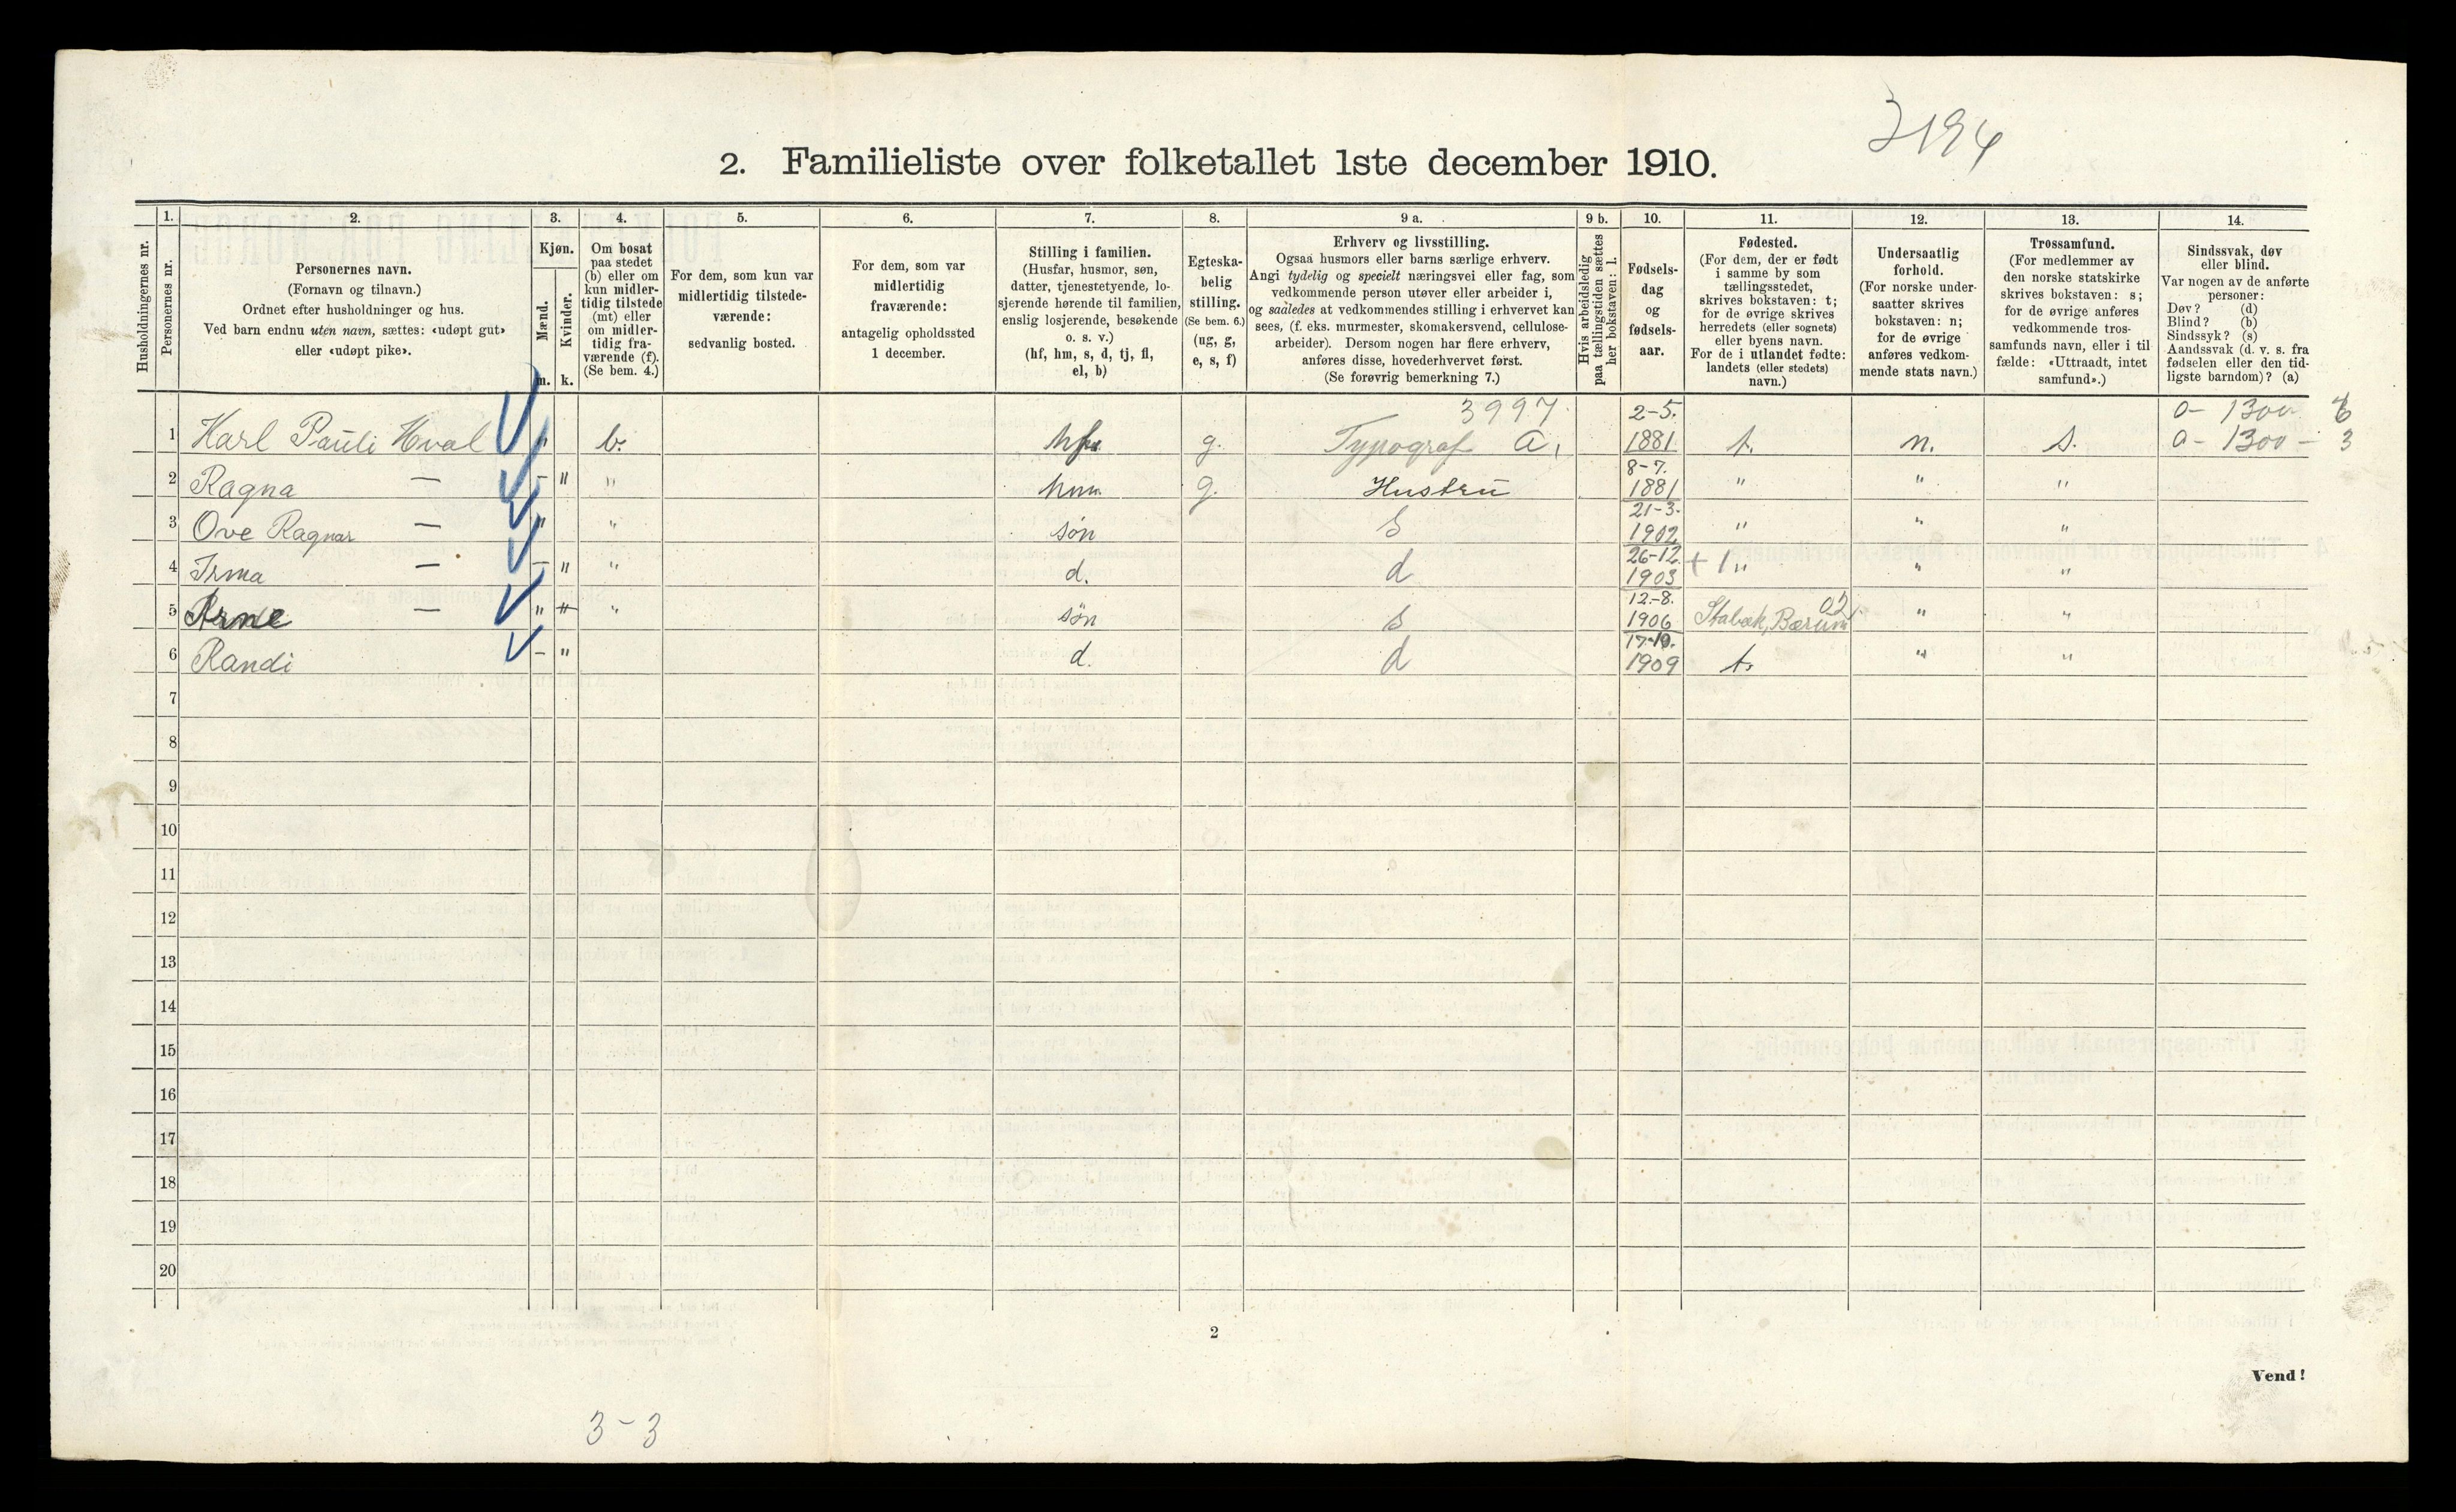 3194
2. Familieliste over folketallet 1ste december 1910.
Husholdningernes nr.
1.
Personernes nr.
2.
Personernes navn.
(Fornavn og tilnavn.)
Ordnet efter husholdninger og hus.
Ved barn endnu uten navn, sættes: «udøpt gut»
eller «udøpt pike».
3.
Kjøn.
Mænd.
Kvinder.
m. k.
4.
Om bosat
paa stedet
(b) eller om
kun midler-
tidig tilstede
(mt) eller
om midler-
tidig fra-
værende (f).
(Se bem. 4.)
5.
For dem, som kun var
midlertidig tilstede-
værende:
sedvanlig bosted.
6.
For dem, som var
midlertidig
fraværende:
antagelig opholdssted
1 december.
7.
Stilling i familien.
(Husfar, husmor, søn,
datter, tjenestetyende, lo-
sjerende hørende til familien,
enslig losjerende, besøkende
o. s. v.)
(hf, hm, s, d, tj, fl,
el, b)
8.
Egteska-
belig
stilling.
(Se bem. 6.)
(ug, g,
e, s, f)
9 a.
Erhverv og livsstilling.
Ogsaa husmors eller barns særlige erhverv.
Angi tydelig og specielt næringsvei eller fag, som
vedkommende person utøver eller arbeider i,
og saaledes at vedkommendes stilling i erhvervet kan
sees, (f. eks. murmester, skomakersvend, cellulose-
arbeider). Dersom nogen har flere erhverv,
anføres disse, hovederhvervet først.
(Se forøvrig bemerkning 7.)
9 b.
Hvis arbeidsledig
paa tællingstiden sættes
her bokstaven: l.
10.
Fødsels-
dag
og
fødsels-
aar.
11.
Fødested.
(For dem, der er født
i samme by som
tællingsstedet,
skrives bokstaven: t;
for de øvrige skrives
herredets (eller sognets)
eller byens navn.
For de i utlandet fødte:
landets (eller stedets)
navn.)
12.
Undersaatlig
forhold.
(For norske under-
saatter skrives
bokstaven: n;
for de øvrige
anføres vedkom-
mende stats navn.)
13.
Trossamfund.
(For medlemmer av
den norske statskirke
skrives bokstaven: s;
for de øvrige anføres
vedkommende tros-
samfunds navn, eller i til
fælde: «Uttraadt, intet
samfund».)
14.
Sindssvak, døv
eller blind.
Var nogen av de anførte
personer:
Døv? (d)
Blind? (b)
Sindssyk? (s)
Aandssvak (d. v. s. fra
fødselen eller den tid-
ligste barndom)? (a)
3997 2-5. 0- 1300- 6
1 Karl Pauli Hval " b. hf g. Typograf a, 1881 t. n. s. 0- 1300 - 3
8-7.
2 Ragna — - " " hm g. Hustru 1881 " " "
21-3.
3 Ove Ragnar — " " søn s 1902 " " "
26-12.
4 Irma — - " " d. d 1903 + 1 " " "
12.-8. 02
5 Arne — " " " søn s 1906 Stabæk, Bærum " "
17-10.
6 Randi - " d. d 1909 t. " "
7
8
9
10
11
12
13
14
15
16
17
18
19
20
2
Vend!
3-3